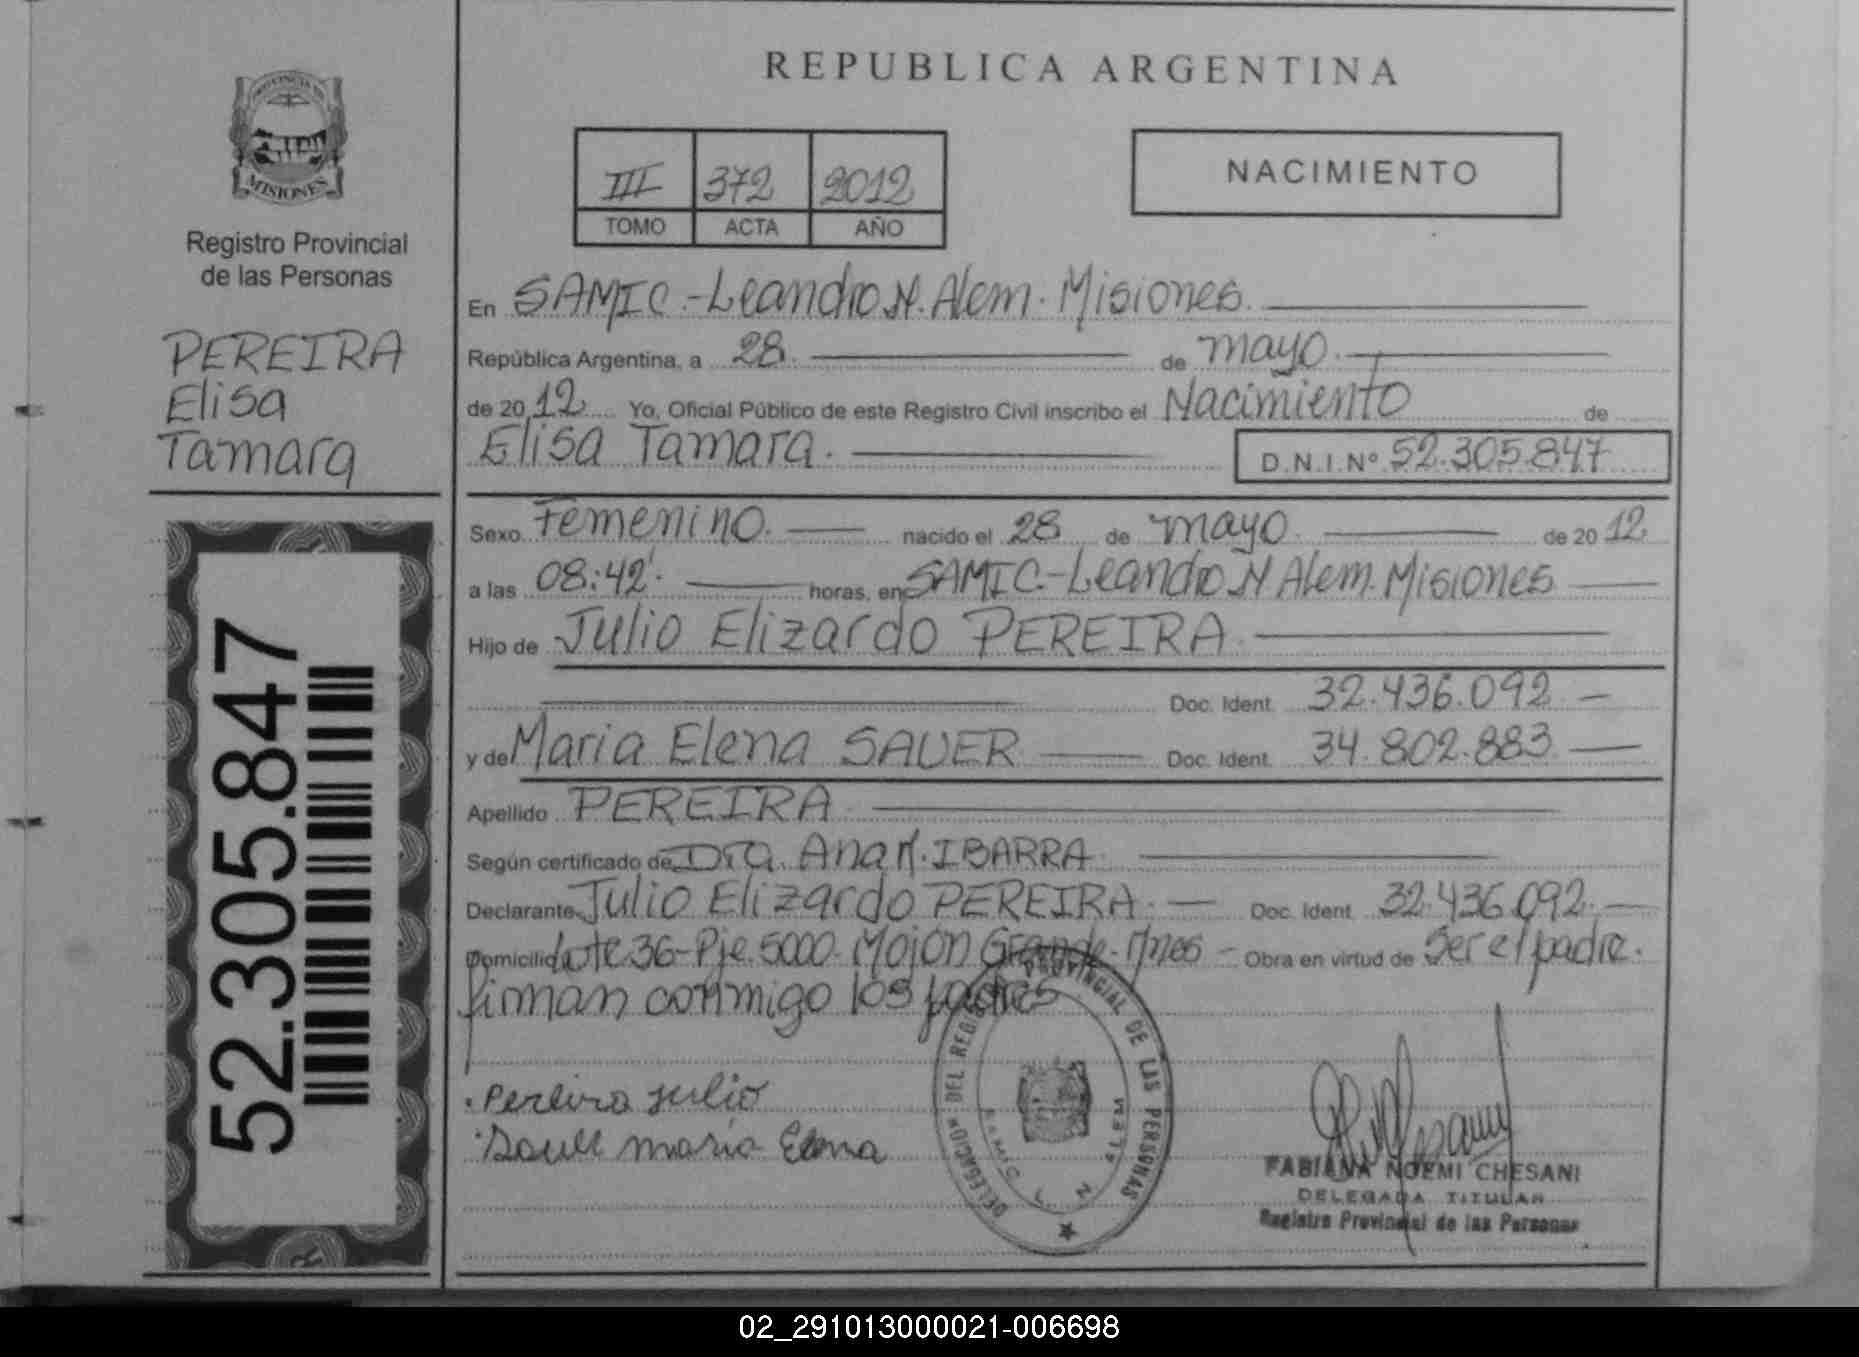 REPUBLICA ARGENTINA
PROVINCIA DE
MISIONES
Registro Provincial
de las Personas
PEREIRA
Elisa
Tamara
52.305.847
III 372 2012
TOMO ACTA AÑO
NACIMIENTO
En SAMIC.-Leandro N. Alem. Misiones.
República Argentina, a 28. de mayo.
de 20 12 Yo, Oficial Público de este Registro Civil inscribo el Nacimiento de
Elisa Tamara. D.N.I.Nº 52.305.847
Sexo Femenino. nacido el 28 de mayo. de 20 12
a las 08:42'. horas, en SAMIC-Leandro N Alem. Misiones
Hijo de Julio Elizardo PEREIRA.
Doc. Ident. 32.436.092
y de Maria Elena SAUER Doc. Ident. 34.802.883
Apellido PEREIRA
Según certificado de Dra. Ana M. IBARRA
Declarante Julio Elizardo PEREIRA. Doc. Ident. 32.436.092
Domicilio Lote 36-Pje. 5000. Mojon Grande. Mnes - Obra en virtud de Ser el padre.
firman conmigo los padres
Pereira Julio
maria Elena
DELEGACION DEL REGISTRO PROVINCIAL DE LAS PERSONAS
SAMIC L. N. ALEM
FABIANA NOEMI CHESANI
DELEGADA TITULAR
Registro Provincial de las Personas
02_291013000021-006698